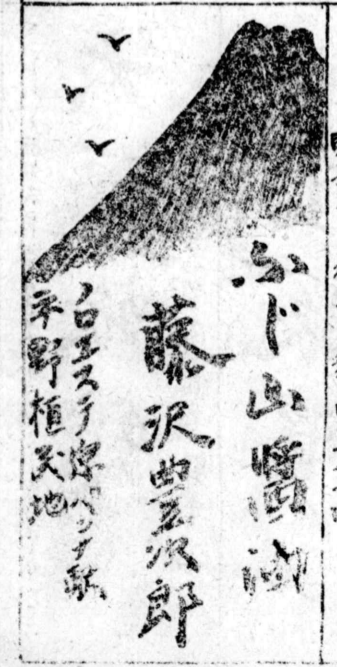 ふじ山醤油
藤沢豊次郎
ノロエステ線ペンナ駅
平野植民地